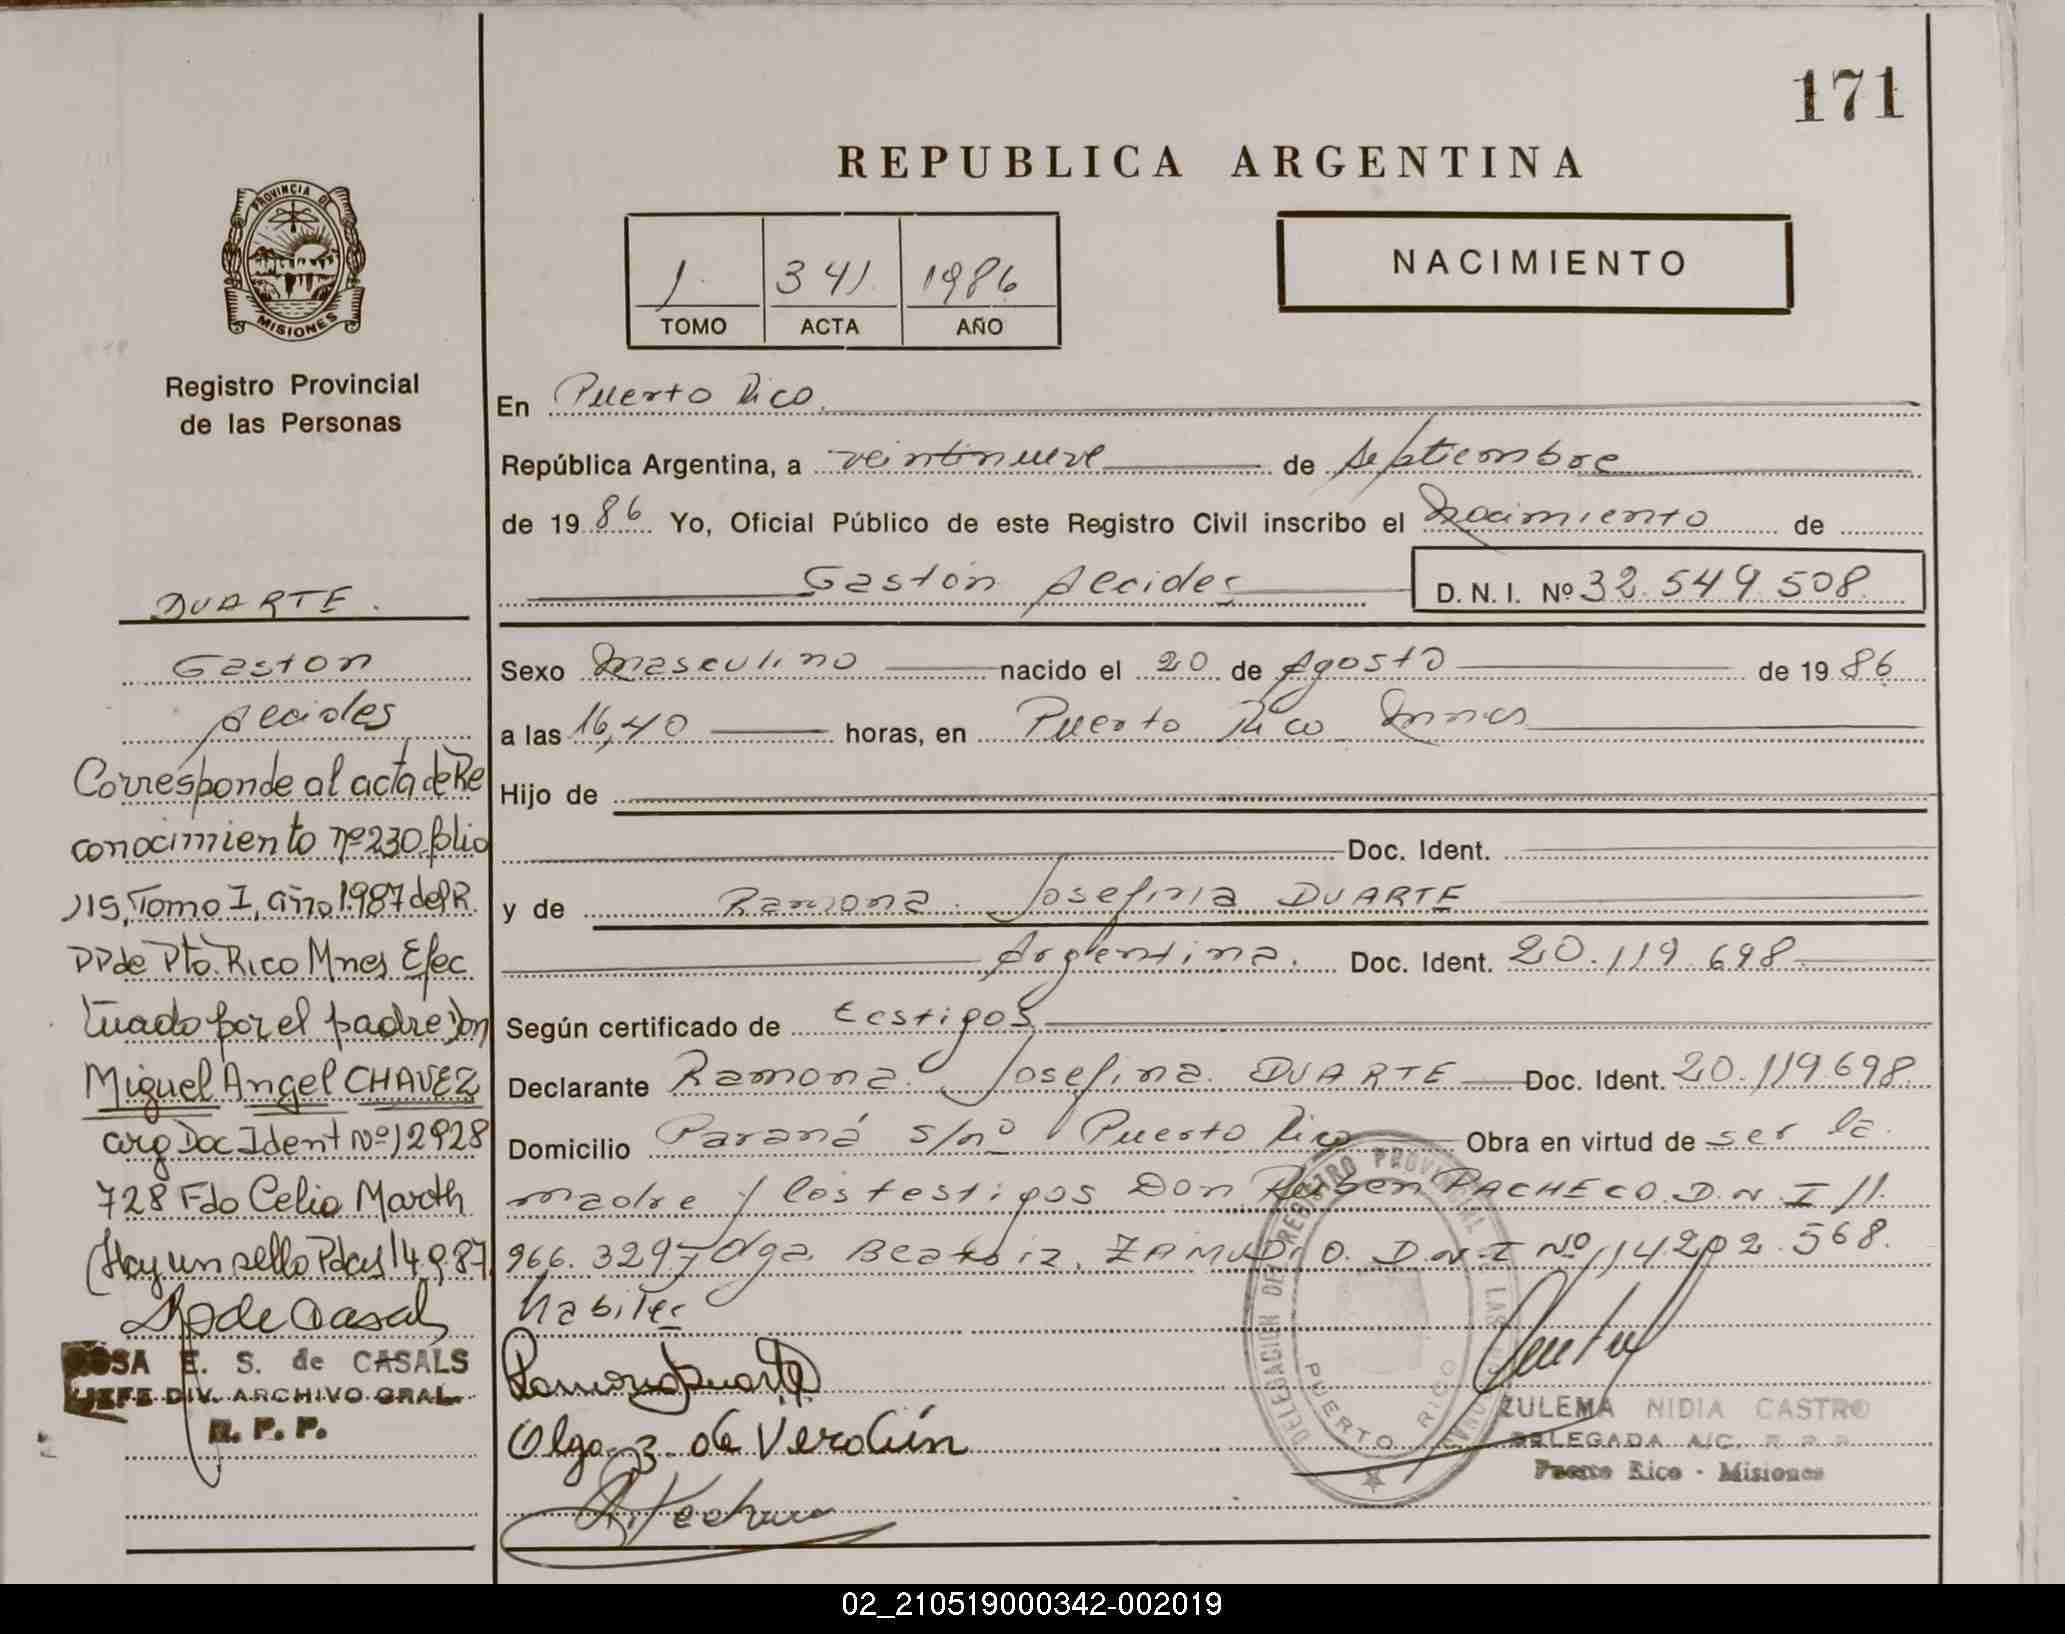 171
REPUBLICA ARGENTINA
PROVINCIA DE
MISIONES
Registro Provincial
de las Personas
1 341 1986
TOMO ACTA AÑO
NACIMIENTO
En Puerto Rico.
República Argentina, a veintinueve de septiembre
de 1986 Yo, Oficial Público de este Registro Civil inscribo el Nacimiento de
Gastón Alcides D. N. I. Nº 32.549.508
Sexo Masculino nacido el 20 de Agosto de 1986
a las 16,40 horas, en Puerto Rico Mnes
Hijo de
Doc. Ident.
y de Ramona Josefina DUARTE
Argentina. Doc. Ident. 20.119.698
Según certificado de testigos
Declarante Ramona Josefina DUARTE Doc. Ident. 20.119.698
Domicilio Paraná s/nº Puerto Rico Obra en virtud de ser la
madre y los testigos Don Ruben PACHECO D.N.I 11.
966.329 y Olga Beatriz ZAMUDIO. D.N.I Nº 14.202.568.
habiles
Ramona Duarte
Olga Z. de Verdún
DELEGACION DEL REGISTRO PROVINCIAL DE LAS PERSONAS
PUERTO RICO
ZULEMA NIDIA CASTRO
DELEGADA A/C. R. P. P.
Puerto Rico - Misiones
DUARTE.
Gaston
Alcides
Corresponde al acta de Re
conocimiento nº 230 folio
115, Tomo I, año 1987 del R.
PP de Pto. Rico Mnes Efec
tuado por el padre Don
Miguel Angel CHAVEZ
arg Doc Ident Nº 12928
728 Fdo Celia Marth
(Hay un sello Pdas 14.9.87
R de Casals
ROSA E. S. de CASALS
JEFE DIV. ARCHIVO GRAL.
R. P. P.
02_210519000342-002019